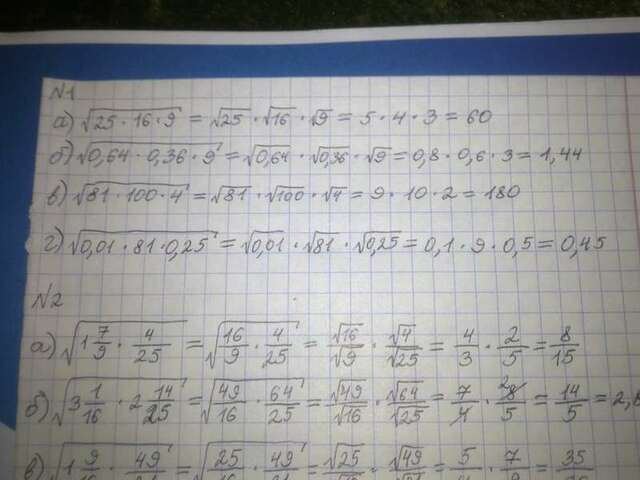 №1
а) √25·16·9 = √25 · √16 · √9 = 5 · 4 · 3 = 60
б) √0,64 · 0,36 · 9 = √0,64 · √0,36 · √9 = 0,8 · 0,6 · 3 = 1,44
в) √81 · 100 · 4 = √81 · √100 · √4 = 9 · 10 · 2 = 180
г) √0,01 · 81 · 0,25 = √0,01 · √81 · √0,25 = 0,1 · 9 · 0,5 = 0,45
№2
а) √1 7/9 · 4/25 = √16/9 · 4/25 = √16/√9 · √4/√25 = 4/3 · 2/5 = 8/15
б) √3 1/16 · 2 14/25 = √49/16 · 64/25 = √49/√16 · √64/√25 = 7/4 · 8/5 = 14/5 = 2,8
в) √1 9/16 · 49 = √25 · 49 = √25 · √49 = 5 · 7 = 35